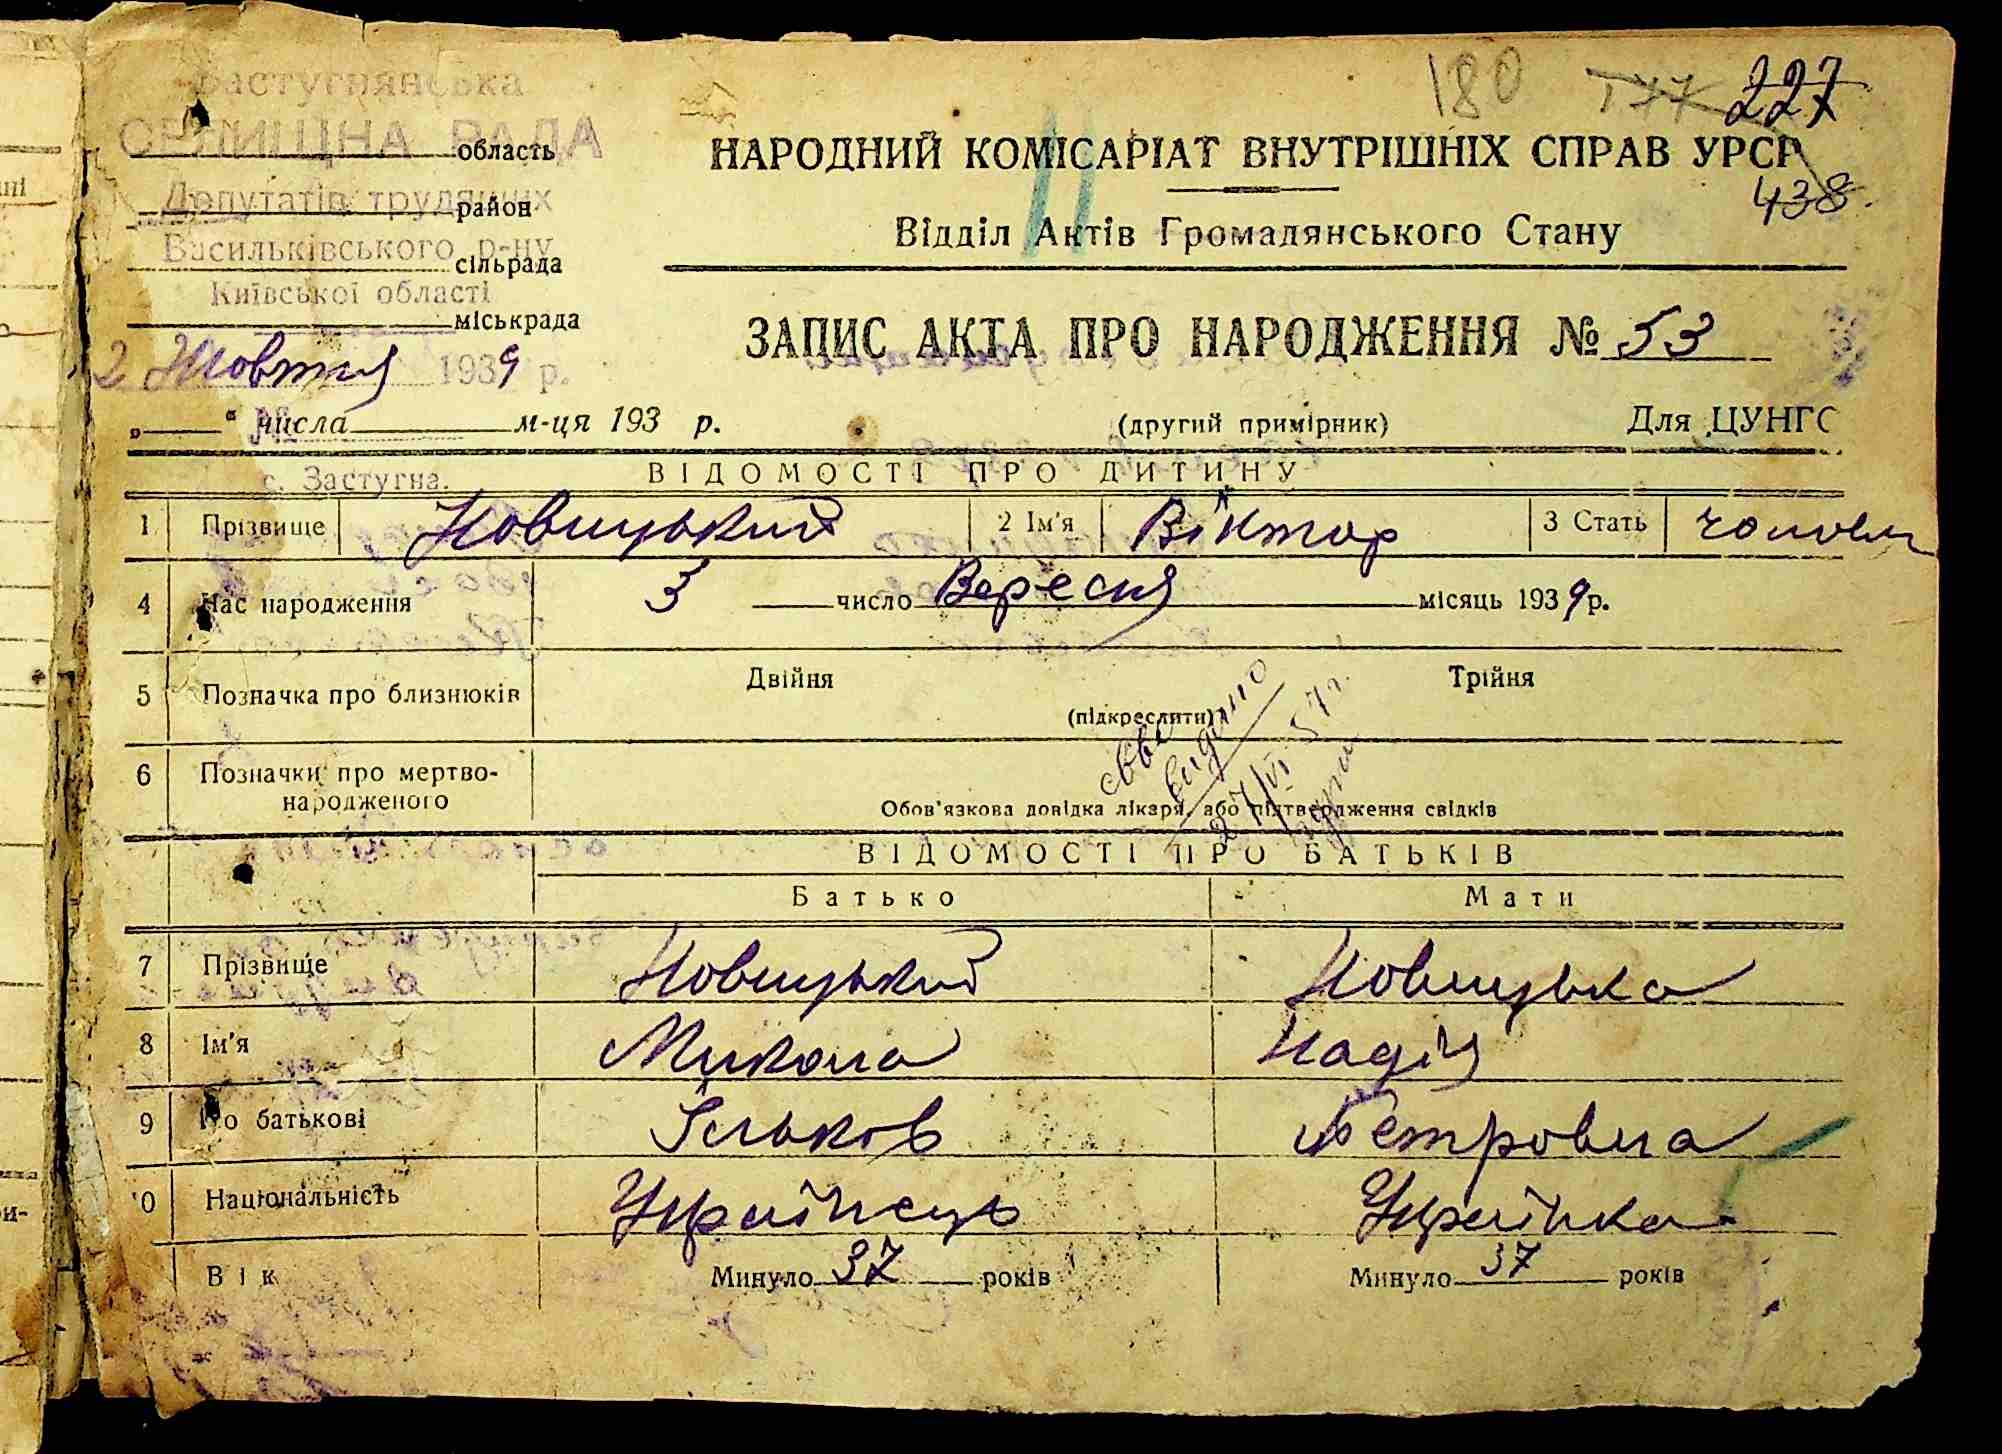 Застугнянська
СЕЛИЩНА РАДА
область
Депутатів трудящих
район
Васильківського р-ну
сільрада
Київської області
міськрада
2 Жовтня 1939 р.
№
„ “ числа м-ця 193 р.
с. Застугна.
180 177 227
НАРОДНИЙ КОМІСАРІАТ ВНУТРІШНІХ СПРАВ УРСР
438.
Відділ Актів Громадянського Стану
ЗАПИС АКТА ПРО НАРОДЖЕННЯ № 53
(другий примірник) Для ЦУНГО
ВІДОМОСТІ ПРО ДИТИНУ
1 Прізвище Новицький 2 Ім'я Віктор 3 Стать чоловіч
4 Час народження 3 число Вересня місяць 1939 р.
5 Позначка про близнюків Двійня Трійня
(підкреслити)
6 Позначки про мертво-
народженого
Обов'язкова довідка лікаря, або підтвердження свідків
видано
27/VI 57 г.
ВІДОМОСТІ ПРО БАТЬКІВ
Батько Мати
7 Прізвище Новицький Новицька
8 Ім'я Микола Надія
9 По батькові Ільков Петровна
10 Національність Українець Українка
Вік Минуло 37 років Минуло 37 років